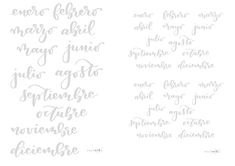 enero febrero
marzo abril
mayo junio
julio agosto
septiembre
octubre
noviembre
diciembre
enero febrero marzo
abril mayo junio
julio agosto
septiembre octubre
noviembre diciembre
enero febrero marzo
abril mayo junio
julio agosto
septiembre octubre
noviembre diciembre